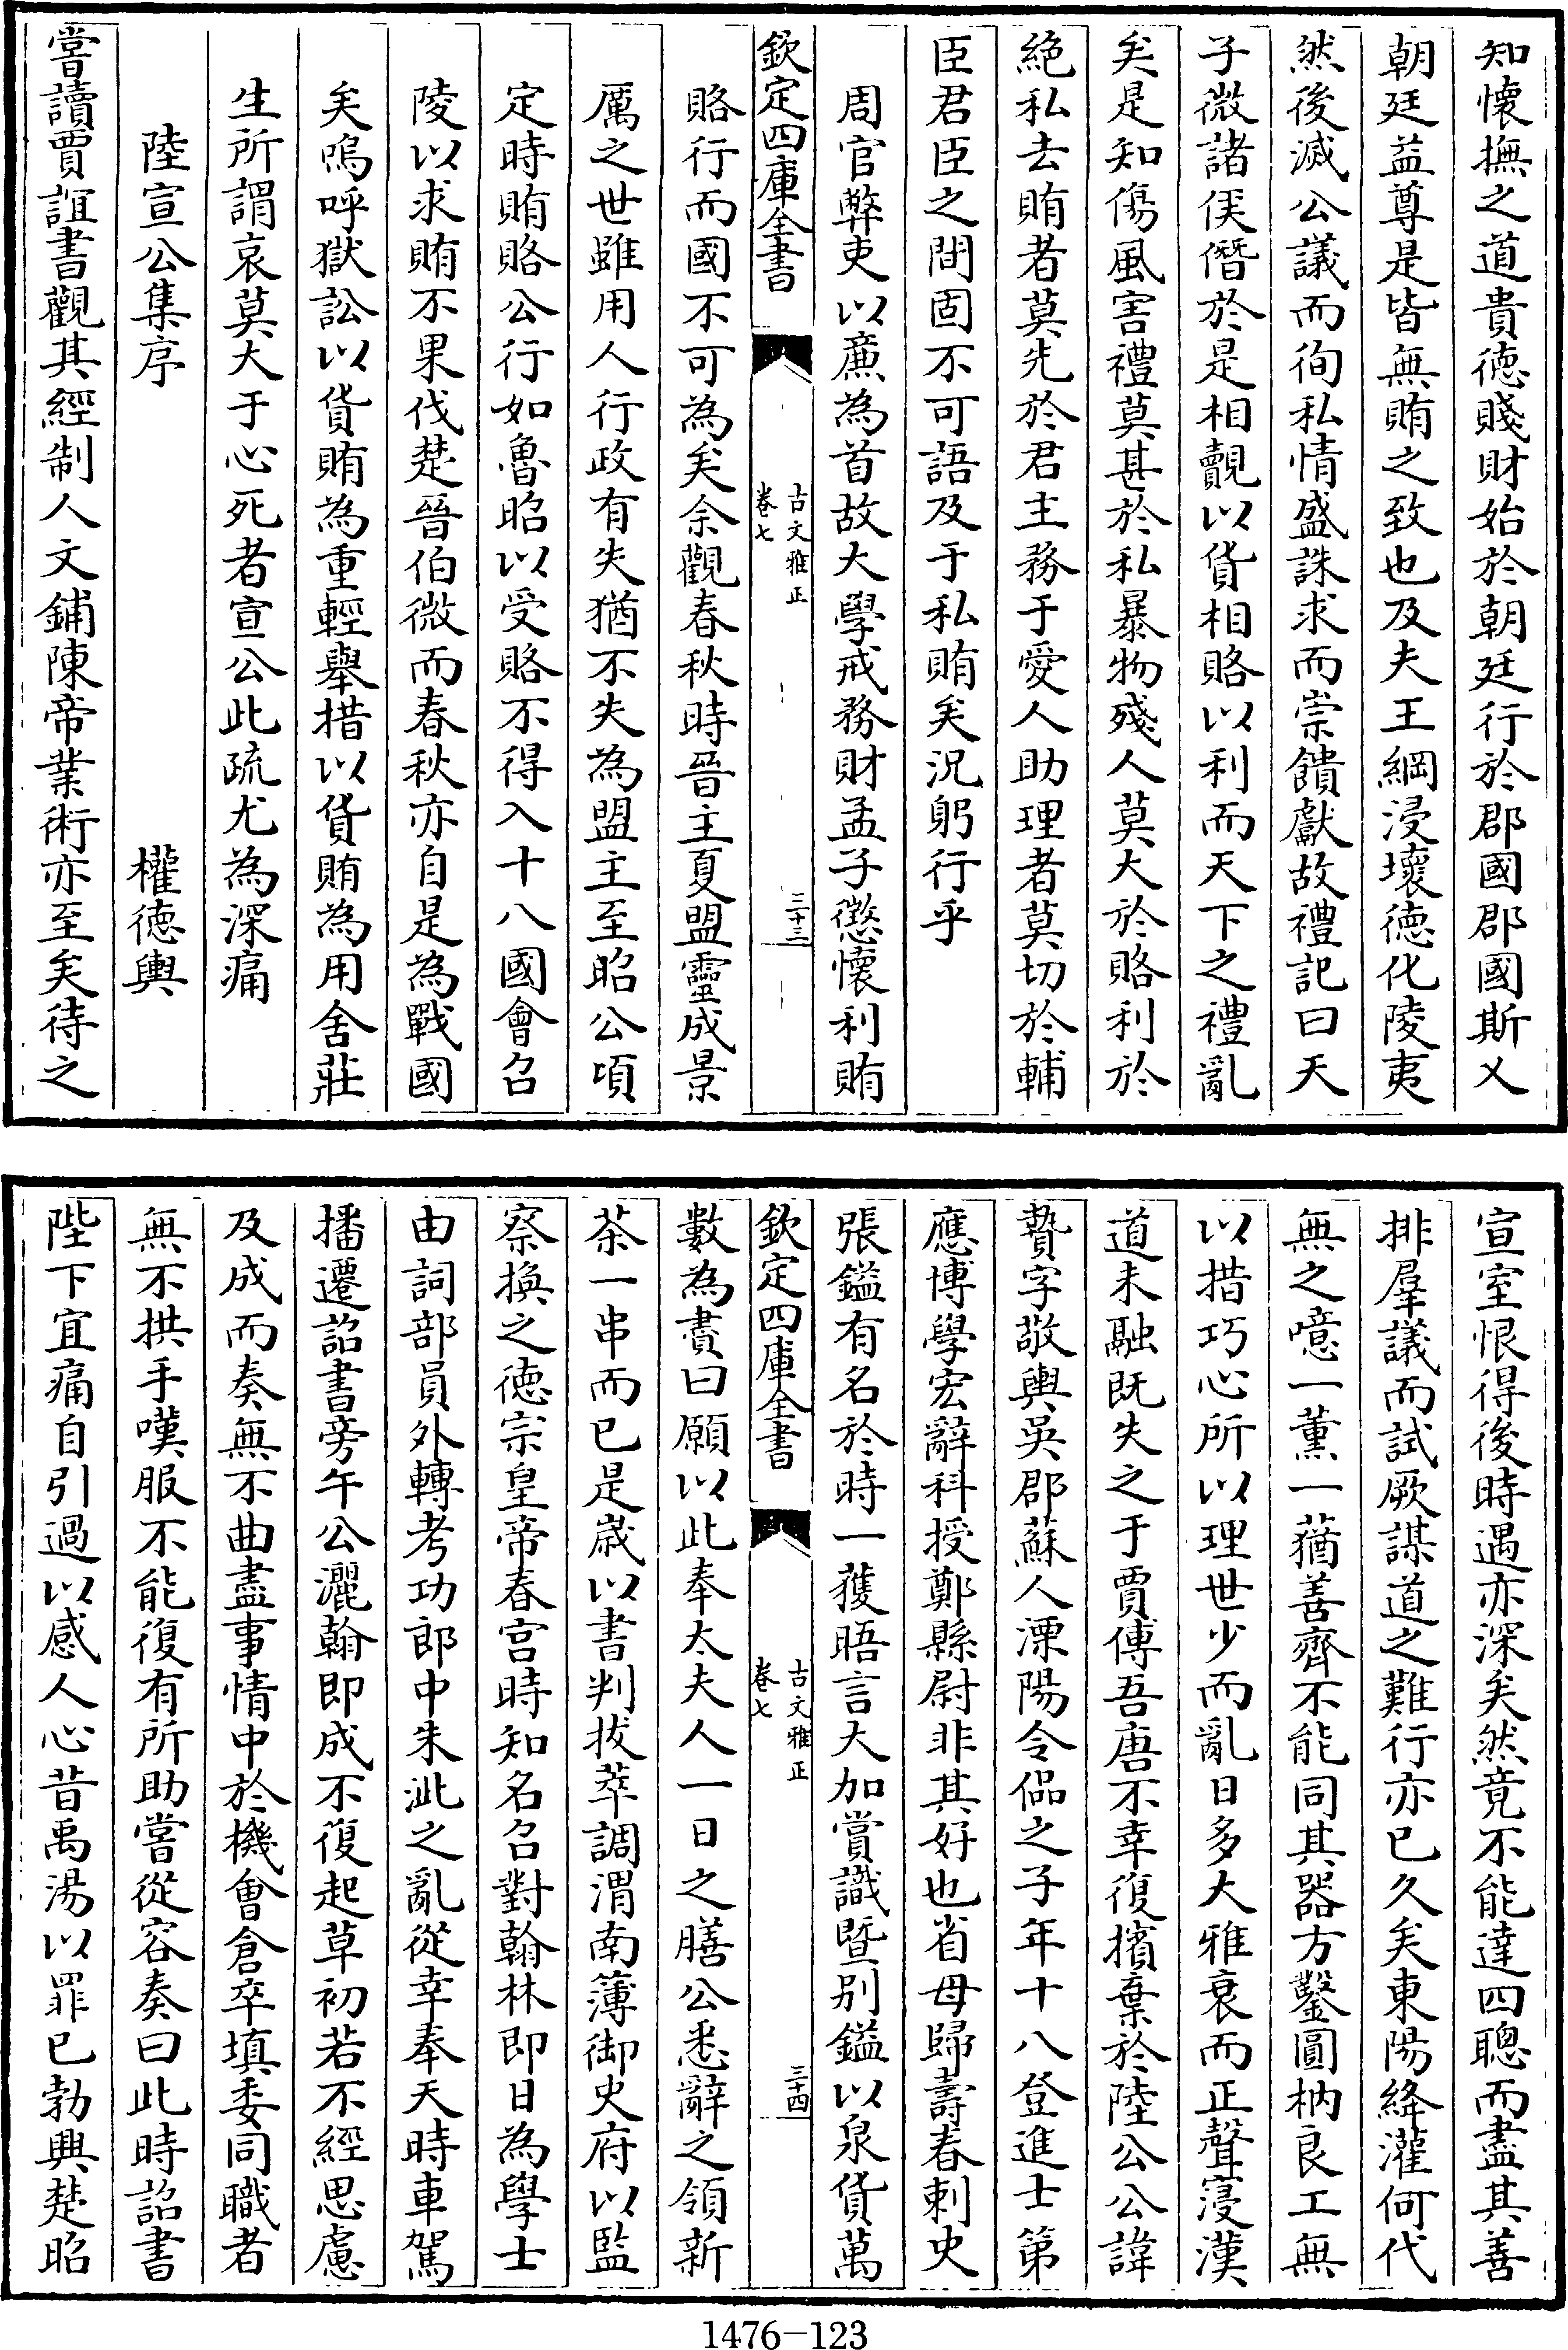 知懷撫之道貴德賤財始於朝廷行於郡國郡國斯乂
朝廷益尊是皆無賄之致也及夫王綱浸壞德化陵夷
然後滅公議而徇私情盛誅求而崇饋獻故禮記曰天
子微諸侯僭於是相覿以貨相賂以利而天下之禮亂
矣是知傷風害禮莫甚於私暴物殘人莫大於賂利於
絕私去賄者莫先於君主務于愛人助理者莫切於輔
臣君臣之間固不可語及于私賄矣況躬行乎
周官弊吏以廉為首故大學戒務財孟子懲懷利賄
欽定四庫全書
古文雅正
卷七
三十三
賂行而國不可為矣余觀春秋時晉主夏盟靈成景
厲之世雖用人行政有失猶不失為盟主至昭公頃
定時賄賂公行如魯昭以受賂不得入十八國會召
陵以求賄不果伐楚晉伯微而春秋亦自是為戰國
矣嗚呼獄訟以貨賄為重輕舉措以貨賄為用舍莊
生所謂哀莫大于心死者宣公此疏尤為深痛
陸宣公集序
權德輿
嘗讀賈誼書觀其經制人文鋪陳帝業術亦至矣待之
宣室恨得後時遇亦深矣然竟不能達四聰而盡其善
排羣議而試厥謀道之難行亦已久矣東陽絳灌何代
無之噫一薰一蕕善齊不能同其器方鑿圓枘良工無
以措巧心所以理世少而亂日多大雅衰而正聲寖漢
道未融既失之于賈傅吾唐不幸復擯棄於陸公公諱
贄字敬輿吳郡蘇人溧陽令偘之子年十八登進士第
應博學宏辭科授鄭縣尉非其好也省母歸壽春刺史
張鎰有名於時一獲晤言大加賞識暨別鎰以泉貨萬
欽定四庫全書
古文雅正
卷七
三十四
數為賮曰願以此奉太夫人一日之膳公悉辭之領新
茶一串而已是歲以書判拔萃調渭南簿御史府以監
察換之德宗皇帝春宮時知名召對翰林即日為學士
由詞部員外轉考功郎中朱泚之亂從幸奉天時車駕
播遷詔書旁午公灑翰即成不復起草初若不經思慮
及成而奏無不曲盡事情中於機會倉卒填委同職者
無不拱手嘆服不能復有所助嘗從容奏曰此時詔書
陛下宜痛自引過以感人心昔禹湯以罪已勃興楚昭
1476-123